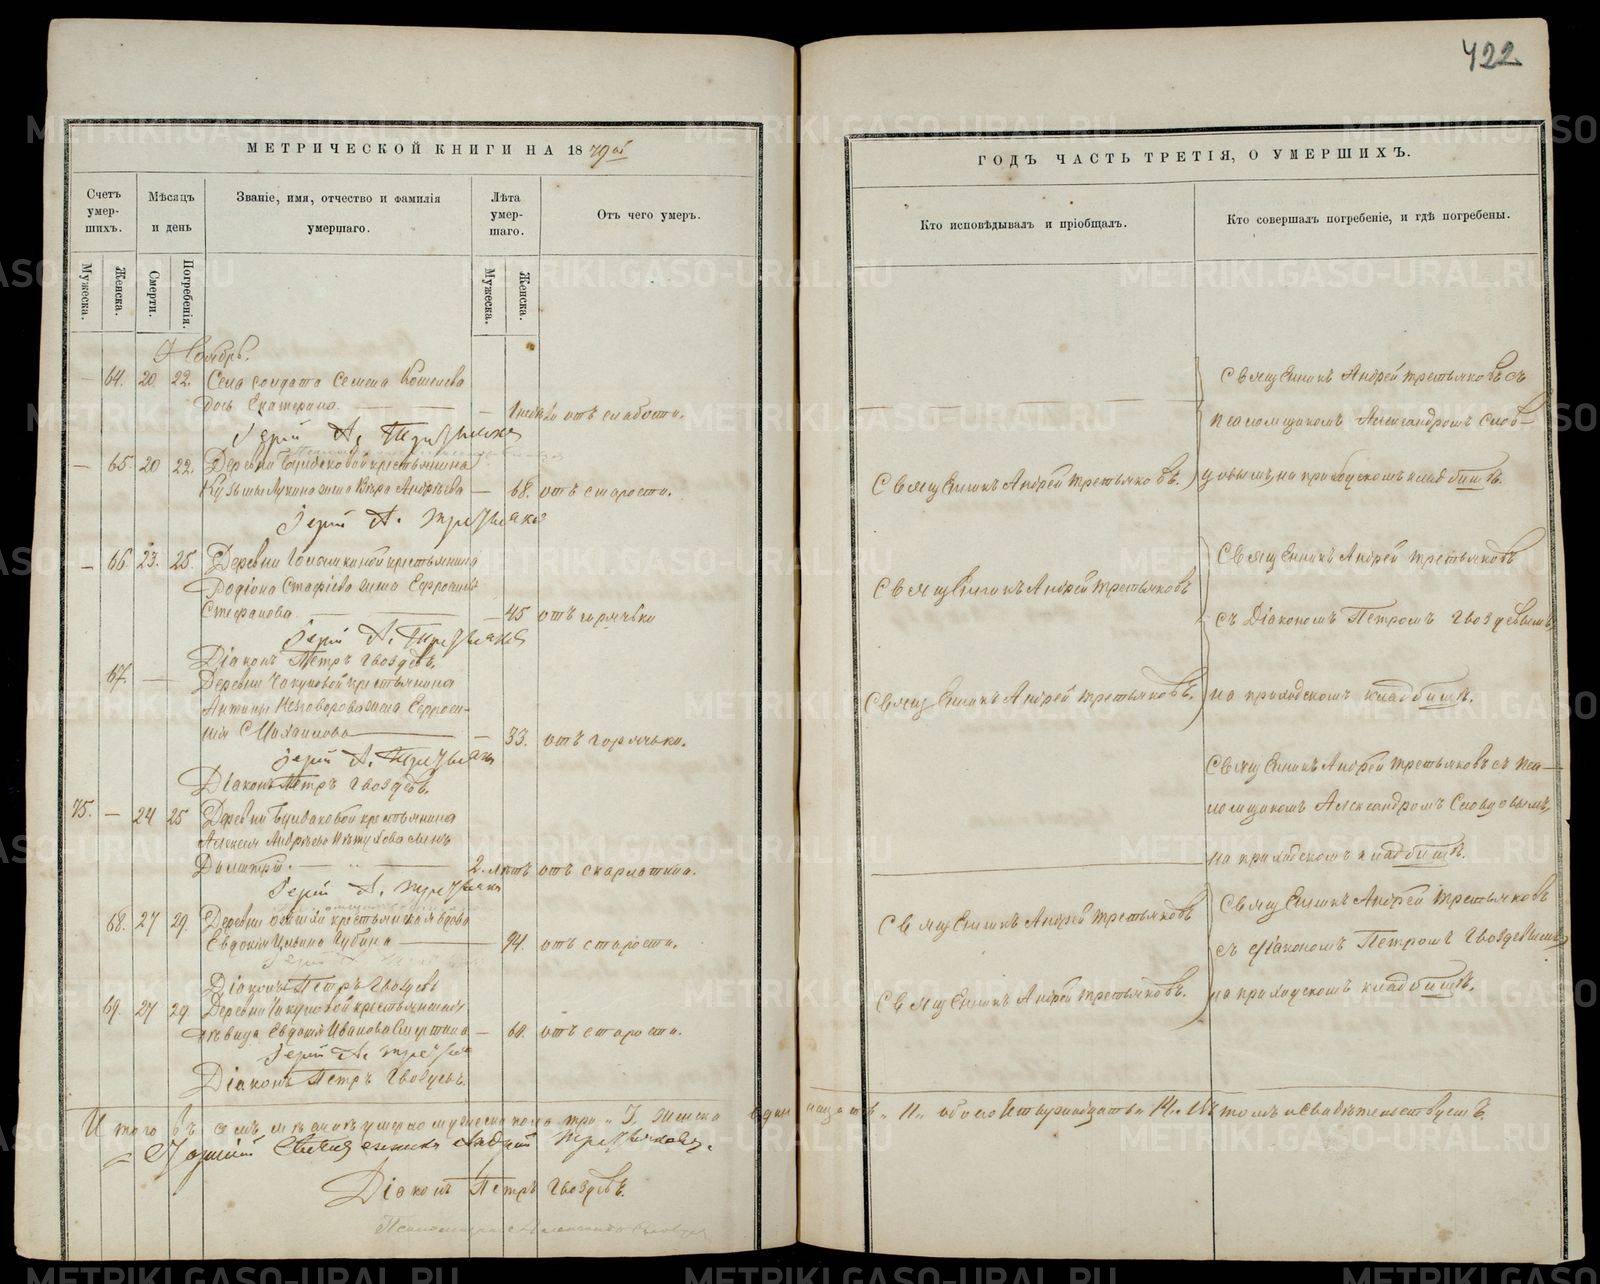 422
МЕТРИЧЕСКОЙ КНИГИ НА 1879ый
Счетъ умер-шихъ.
Мѣсяцъ и день
Званіе, имя, отчество и фамилія умершаго.
Лѣта умер-шаго.
Отъ чего умеръ.
Мужеска.
Женска.
Смерти.
Погребенія.
Мужеска.
Женска.
Ноябрь.
64. 20 22. Села солдата Семена Кошелева
дочь Екатерина. отъ слабости.
Іерей А. Третьяковъ
65. 20 22. Деревни крестьянина
Кузьмы Лукина жена Вѣра Андреева 68. отъ старости.
Іерей А. Третьяковъ
66. 23. 25. Деревни крестьянина
Родіона жена Евфросинія
Стефанова 45 отъ горячки
Іерей А. Третьяковъ
Діаконъ Петръ Гвоздевъ.
67. Деревни Чакуновой крестьянина
Антипы жена Евфроси-
нія Михаилова 33. отъ горячки.
Іерей А. Третьяковъ
Діаконъ Петръ Гвоздевъ.
75. 24 25 Деревни крестьянина
Алексея Андреева сынъ
Димитрій. 2. лѣтъ отъ скарлатина.
Іерей А. Третьяковъ
68. 27 29. Деревни крестьянская вдова
Евдокія Губина 94. отъ старости.
Діаконъ Петръ Гвоздевъ
69. 27 29 Деревни Чакуновой крестьянская
дѣвица Евдокія Иванова 64. отъ старости.
Іерей А. Третьяковъ
Діаконъ Петръ Гвоздевъ.
Итого въ семъ мѣсяцѣ умерло мужеска пола три „ 3. женска одинадцать „ 11 „ обоего четырнадцать „ 14 „ Въ томъ и свидѣтельствуемъ
Священникъ Андрей Третьяковъ.
Діаконъ Петръ Гвоздевъ.
Псаломщикъ Александръ Словцовъ
ГОДЪ ЧАСТЬ ТРЕТІЯ, О УМЕРШИХЪ.
Кто исповѣдывалъ и пріобщалъ.
Кто совершалъ погребеніе, и гдѣ погребены.
Священникъ Андрей Третьяковъ съ
псаломщикомъ Александромъ Слов-
Священникъ Андрей Третьяковъ. цовымъ, на приходскомъ кладбищѣ.
Священникъ Андрей Третьяковъ
Священникъ Андрей Третьяковъ
съ Діакономъ Петромъ Гвоздевымъ,
Священникъ Андрей Третьяковъ. на приходскомъ кладбищѣ.
Священникъ Андрей Третьяковъ съ пса-
ломщикомъ Александромъ Словцовымъ,
на приходскомъ кладбищѣ.
Священникъ Андрей Третьяковъ
Священникъ Андрей Третьяковъ
съ Діакономъ Петромъ Гвоздевымъ
Священникъ Андрей Третьяковъ. на приходскомъ кладбищѣ.
METRIKI.GASO-URAL.RU